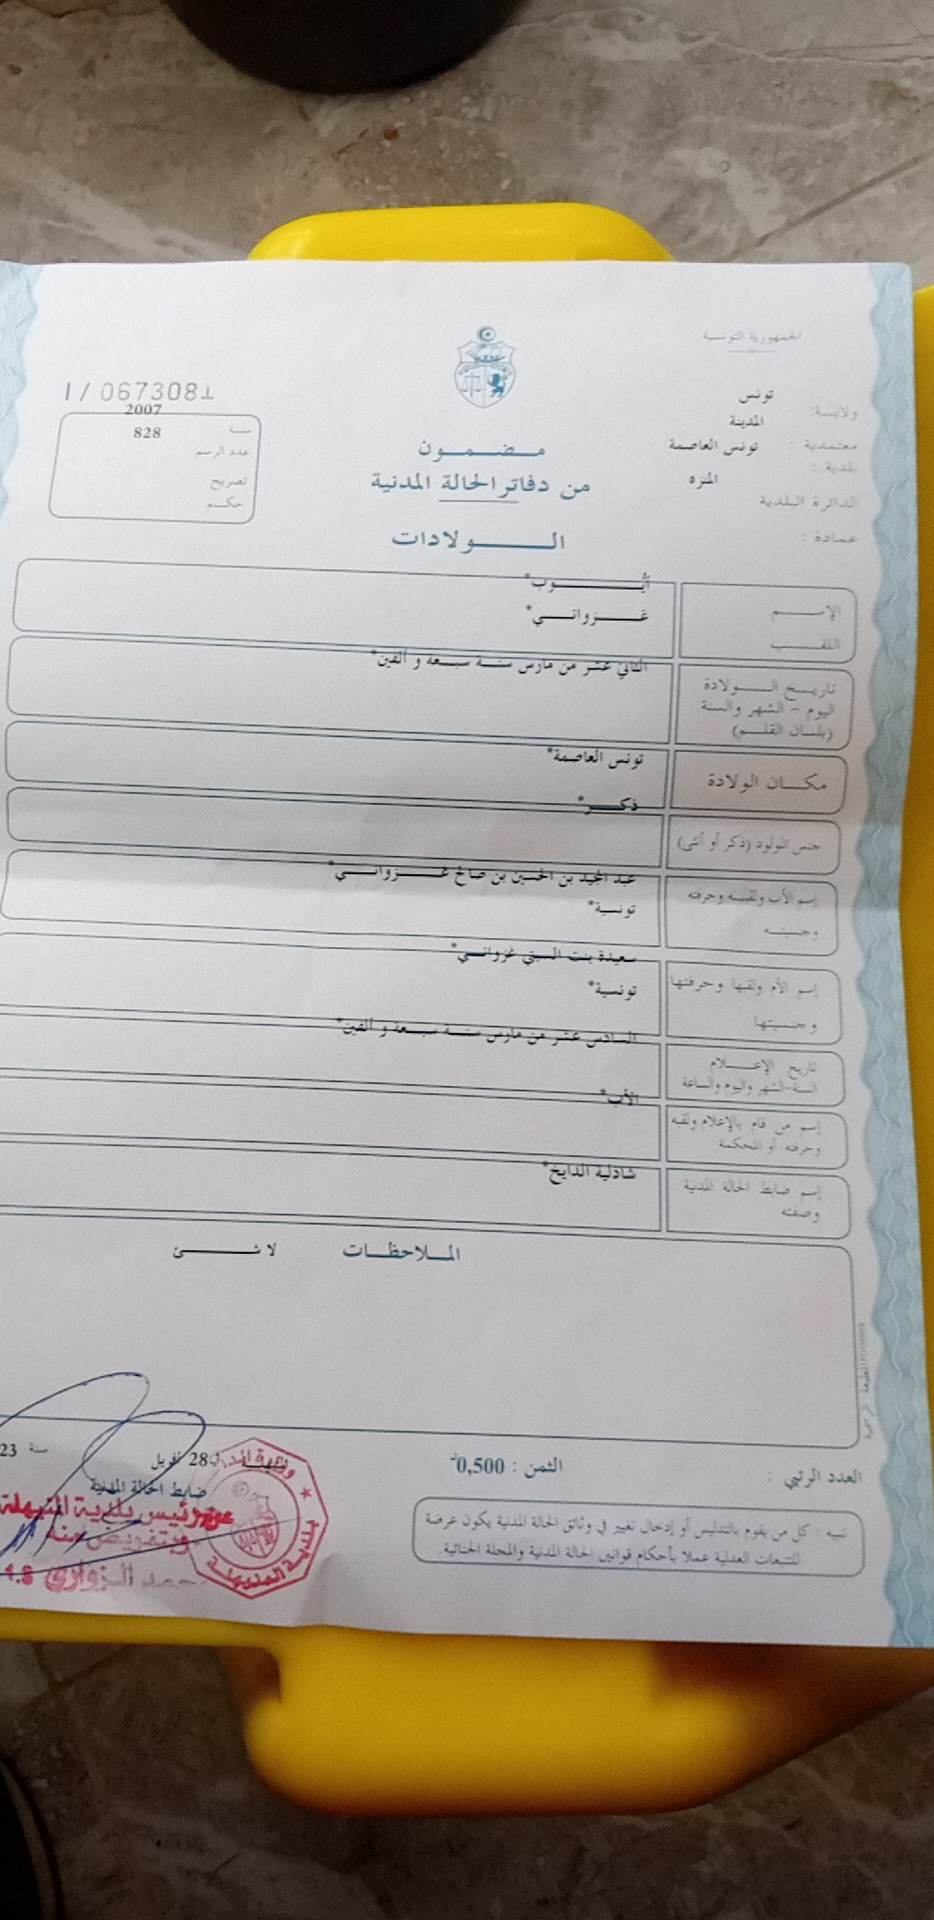 الجمهورية التونسية
ولاية: تونس
معتمدية : المدينة
بلدية : تونس العاصمة
الدائرة البلدية المنزه
عمادة :
I / 067308
سنة 2007
عدد الرسم 828
تصريح
حكم
مضمون
من دفاتر الحالة المدنية
الولادات
الإسم أيوب*
اللقب غزواني*
تاريخ الولادة
اليوم - الشهر والسنة
(بلسان القلم)
الثاني عشر من مارس سنة سبعة و ألفين*
مكان الولادة تونس العاصمة*
جنس المولود (ذكر أو أنثى) ذكر*
إسم الأب ولقبه وحرفته عبد المجيد بن الحسين بن صالح غزواني*
وجنسيته تونسية*
إسم الأم ولقبها وحرفتها سعيدة بنت السبتي غزواني*
وجنسيتها تونسية*
تاريخ الإعلام السادس عشر من مارس سنة سبعة و ألفين*
السنة-الشهر واليوم والساعة
إسم من قام بالإعلام ولقبه الأب*
وحرفته أو المحكمة
إسم ضابط الحالة المدنية شاذلية الدايخ*
وصفته
الملاحظات لا شئ
المطبعة الرسمية
العدد الرتبي :
الثمن : 0,500د
في 28 أفريل سنة 23
ضابط الحالة المدنية
عن رئيس بلدية المنيهلة
وبتفويض منه
الزواري
بلدية المنيهلة
تنبيه : كل من يقوم بالتدليس أو إدخال تغيير في وثائق الحالة المدنية يكون عرضة
للتبعات العدلية عملا بأحكام قوانين الحالة المدنية والمجلة الجنائية.